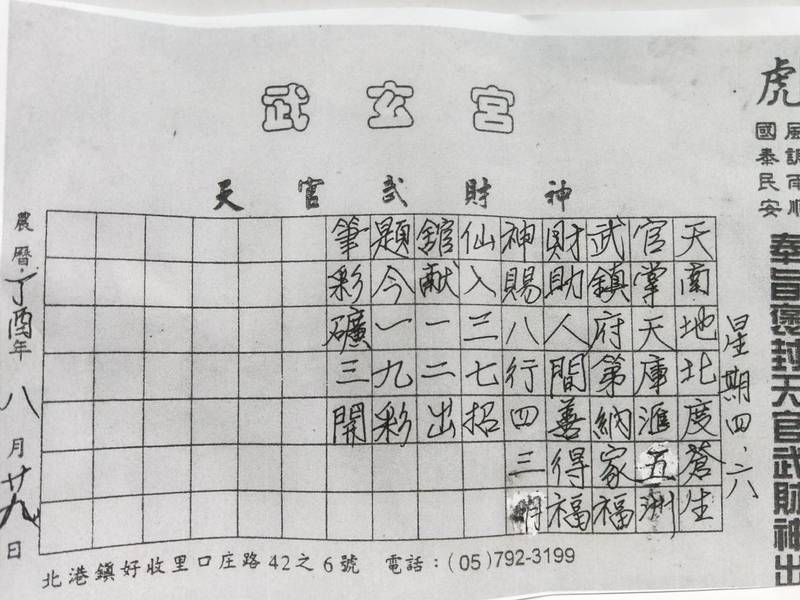 武玄宮
天官武財神
虎
風調雨順
國泰民安
奉旨褒封天官武財神出
星期四.六
天南地北度蒼生
官掌天庫滙五洲
武鎮府第納家福
財助人間善得福
神賜八行四三
仙入三七招
舘献一二出
題今一九彩
筆彩礦三開
農曆丁酉年八月廿九日
北港鎮好收里口庄路42之6號 電話：(05)792-3199